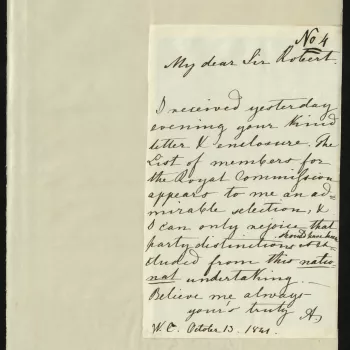 No 4
My dear Sir Robert.
I received yesterday
evening your kind
letter & enclosure. The
List of members for
the Royal Commission
appears to me an ad=
mirable selection, &
I can only rejoice that
should have been
party distinctions
cluded from this natio=
nal undertaking.
Believe me always
your's truly A
W. C. October 13. 1841.